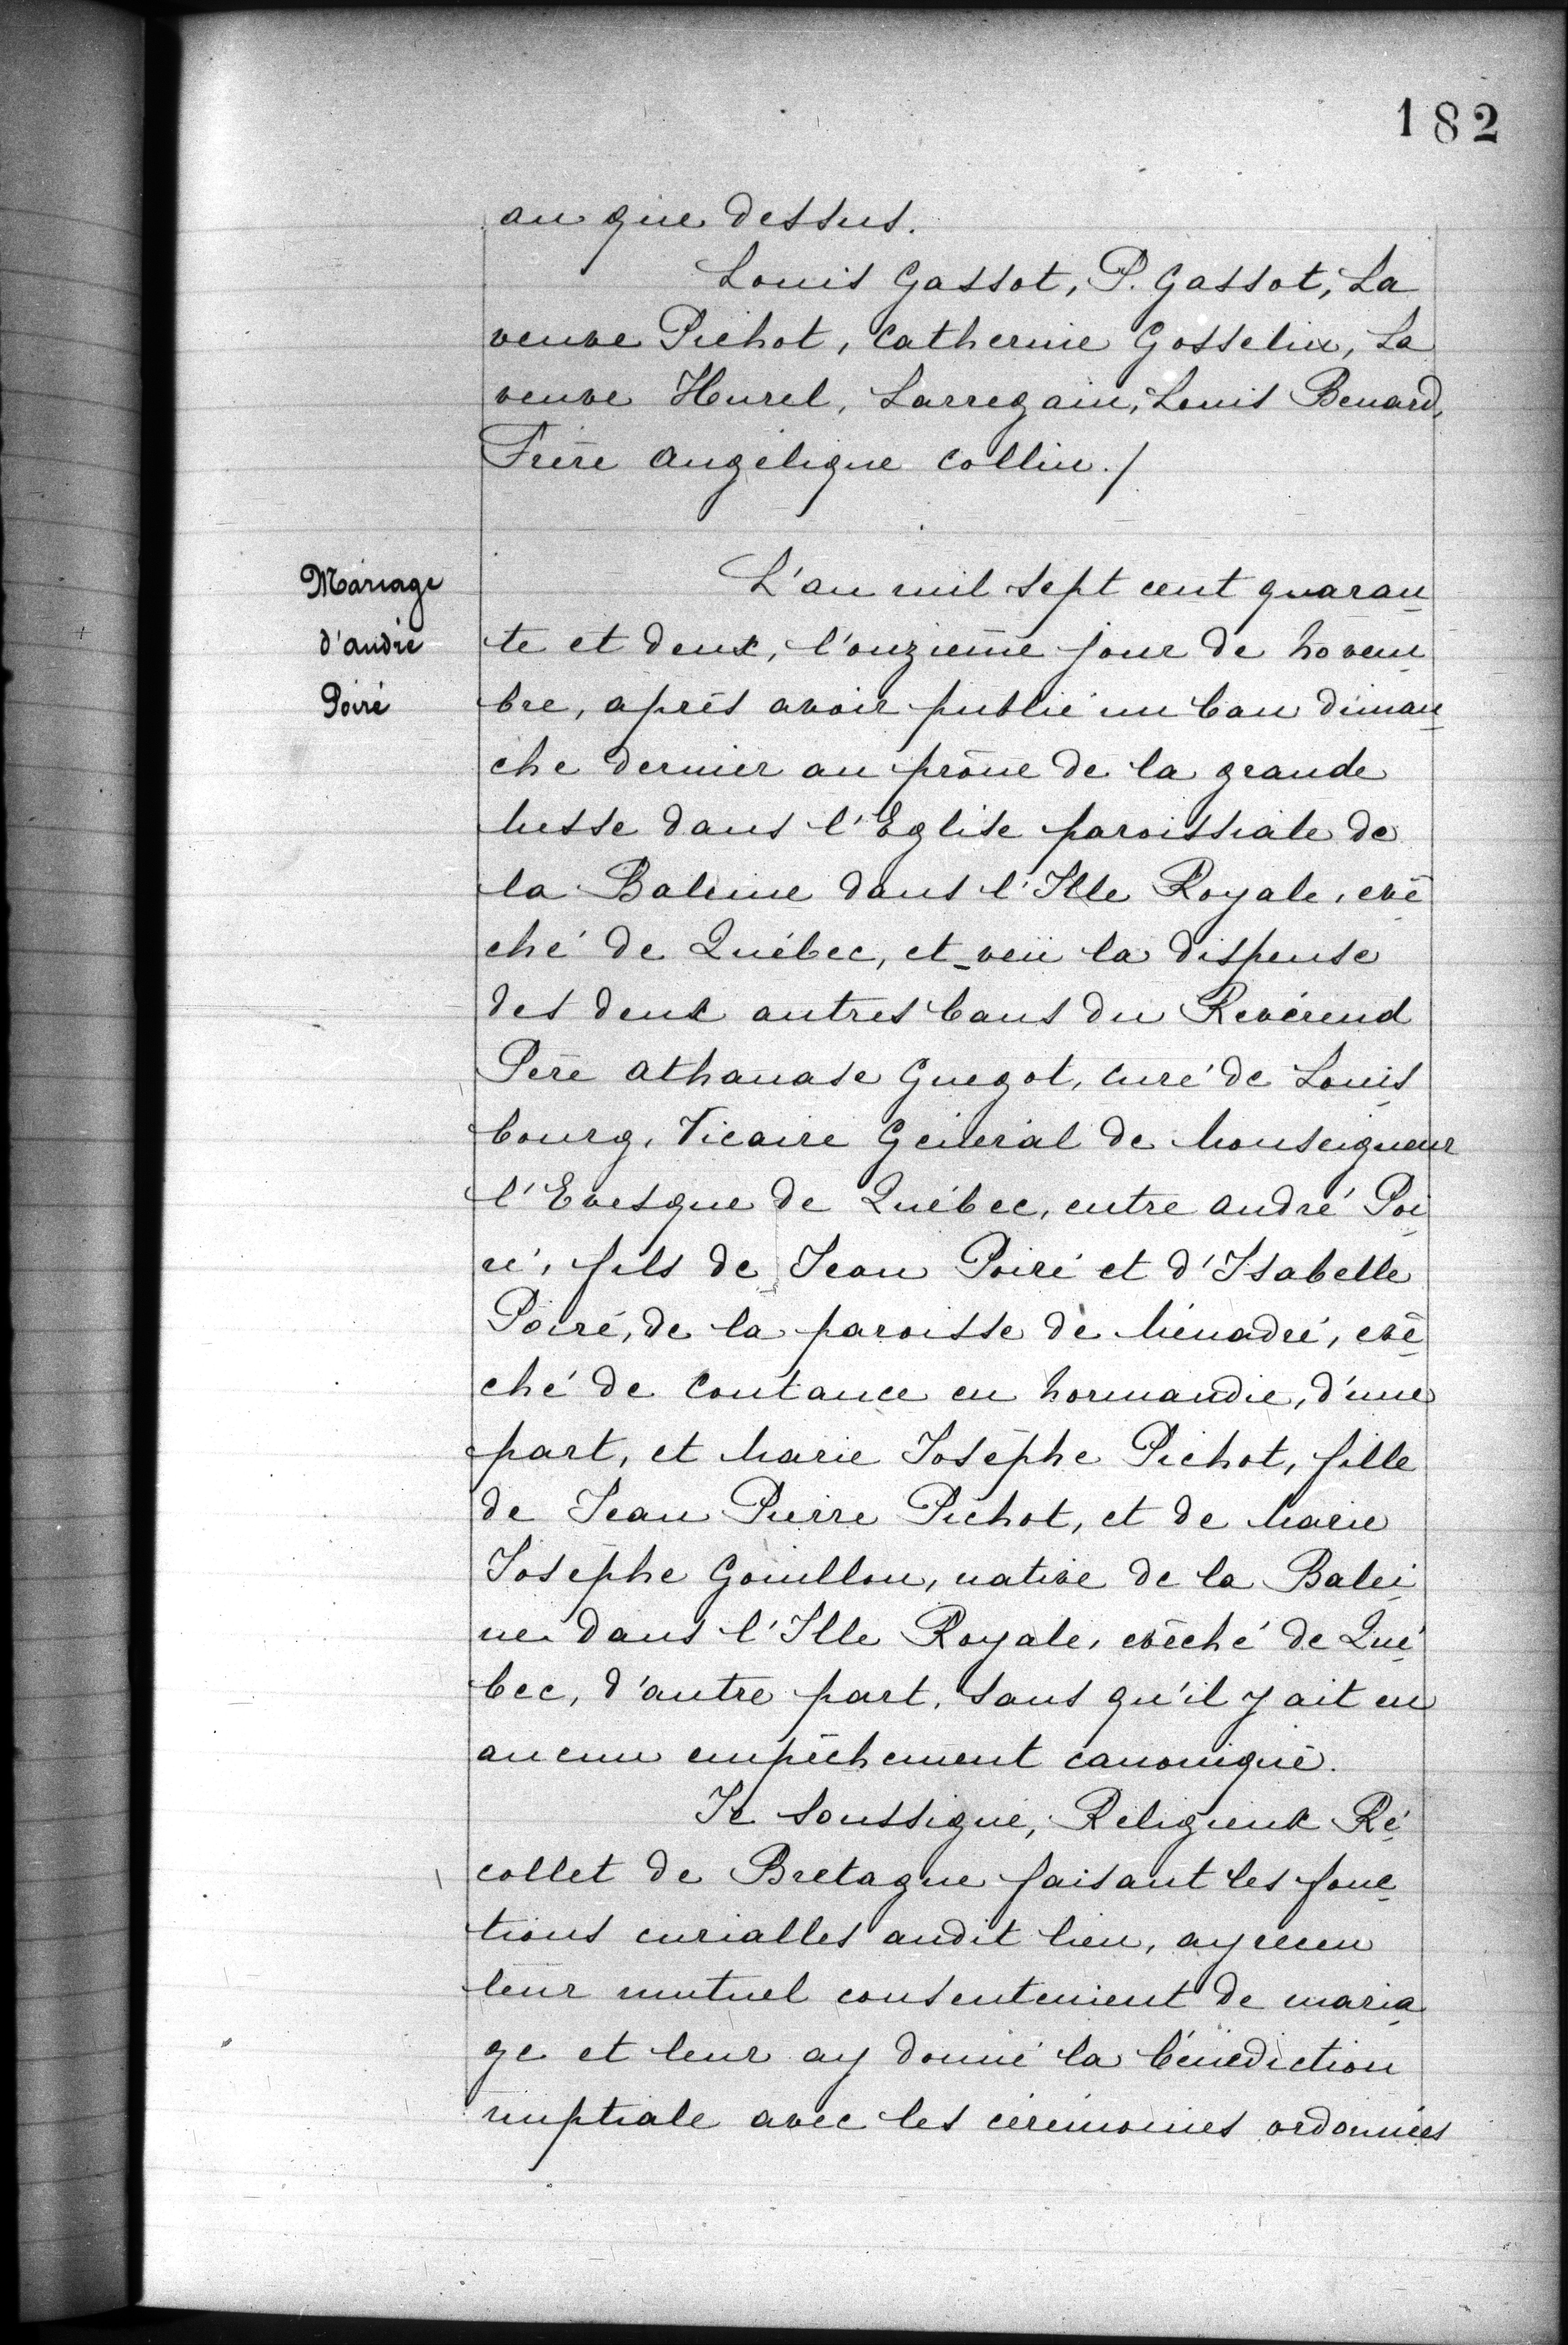 182
an que dessus.
Louis Gassot, P. Gassot, La
veuve Pichot, Catherine Gosselin, La
veuve Hurel, Larregain, Louis Benard,
Frère Angélique Collin./
Mariage
d'André
Poiré
L'an mil sept cent quaran
te et deux, l'onzième jour de Novem
bre, après avoir publié un ban diman
che dernier au prône de la grande
Messe dans l'Eglise paroissiale de
la Baleine dans l'Ille Royale, evê
ché de Québec, et veü la dispense
des deux autres bans du Révérend
Père Athanase Guegot, curé de Louis
bourg, Vicaire Général de Monseigneur
l'Evesque de Québec, entre André Poi
ré, fils de Jean Poiré et d'Isabelle
Poiré, de la paroisse de Ménadré, evê
ché de Coutance en Normandie, d'une
part, et Marie Josèphe Pichot, fille
de Jean Pierre Pichot, et de Marie
Josèphe Gouillon, native de la Balei
ne dans l'Ille Royale, evêché de Qué
bec, d'autre part, sans qu'il y ait eu
aucun empêchement canonique.
Je soussigné, Religieux Ré
collet de Bretagne faisant les fonc
tions curialles audit lieu, ay receu
leur mutuel consentement de maria
ge et leur ay donné la bénédiction
nuptiale avec les cérémonies ordonnées